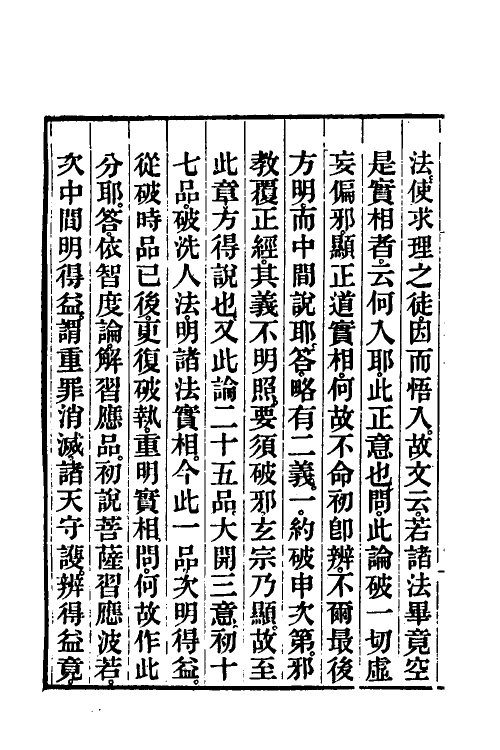 法。使求理之徒。因而悟入。故文云。若諸法畢竟空
是實相者。云何入耶。此正意也。問。此論破一切虛
妄偏邪。顯正道實相。何故不命初卽辨。不爾最後
方明。而中間說耶。答。略有二義。一。約破申次第。邪
教覆正經。其義不明照。要須破邪。玄宗乃顯。故至
此章。方得說也。又此論二十五品。大開三意。初十
七品。破洗人法。明諸法實相。今此一品。次明得益。
從破時品已後。更復破執。重明實相。問。何故作此
分耶。答。依智度論。解習應品。初說菩薩習應波若。
次中間明得益。謂重罪消滅。諸天守護。辨得益竟。